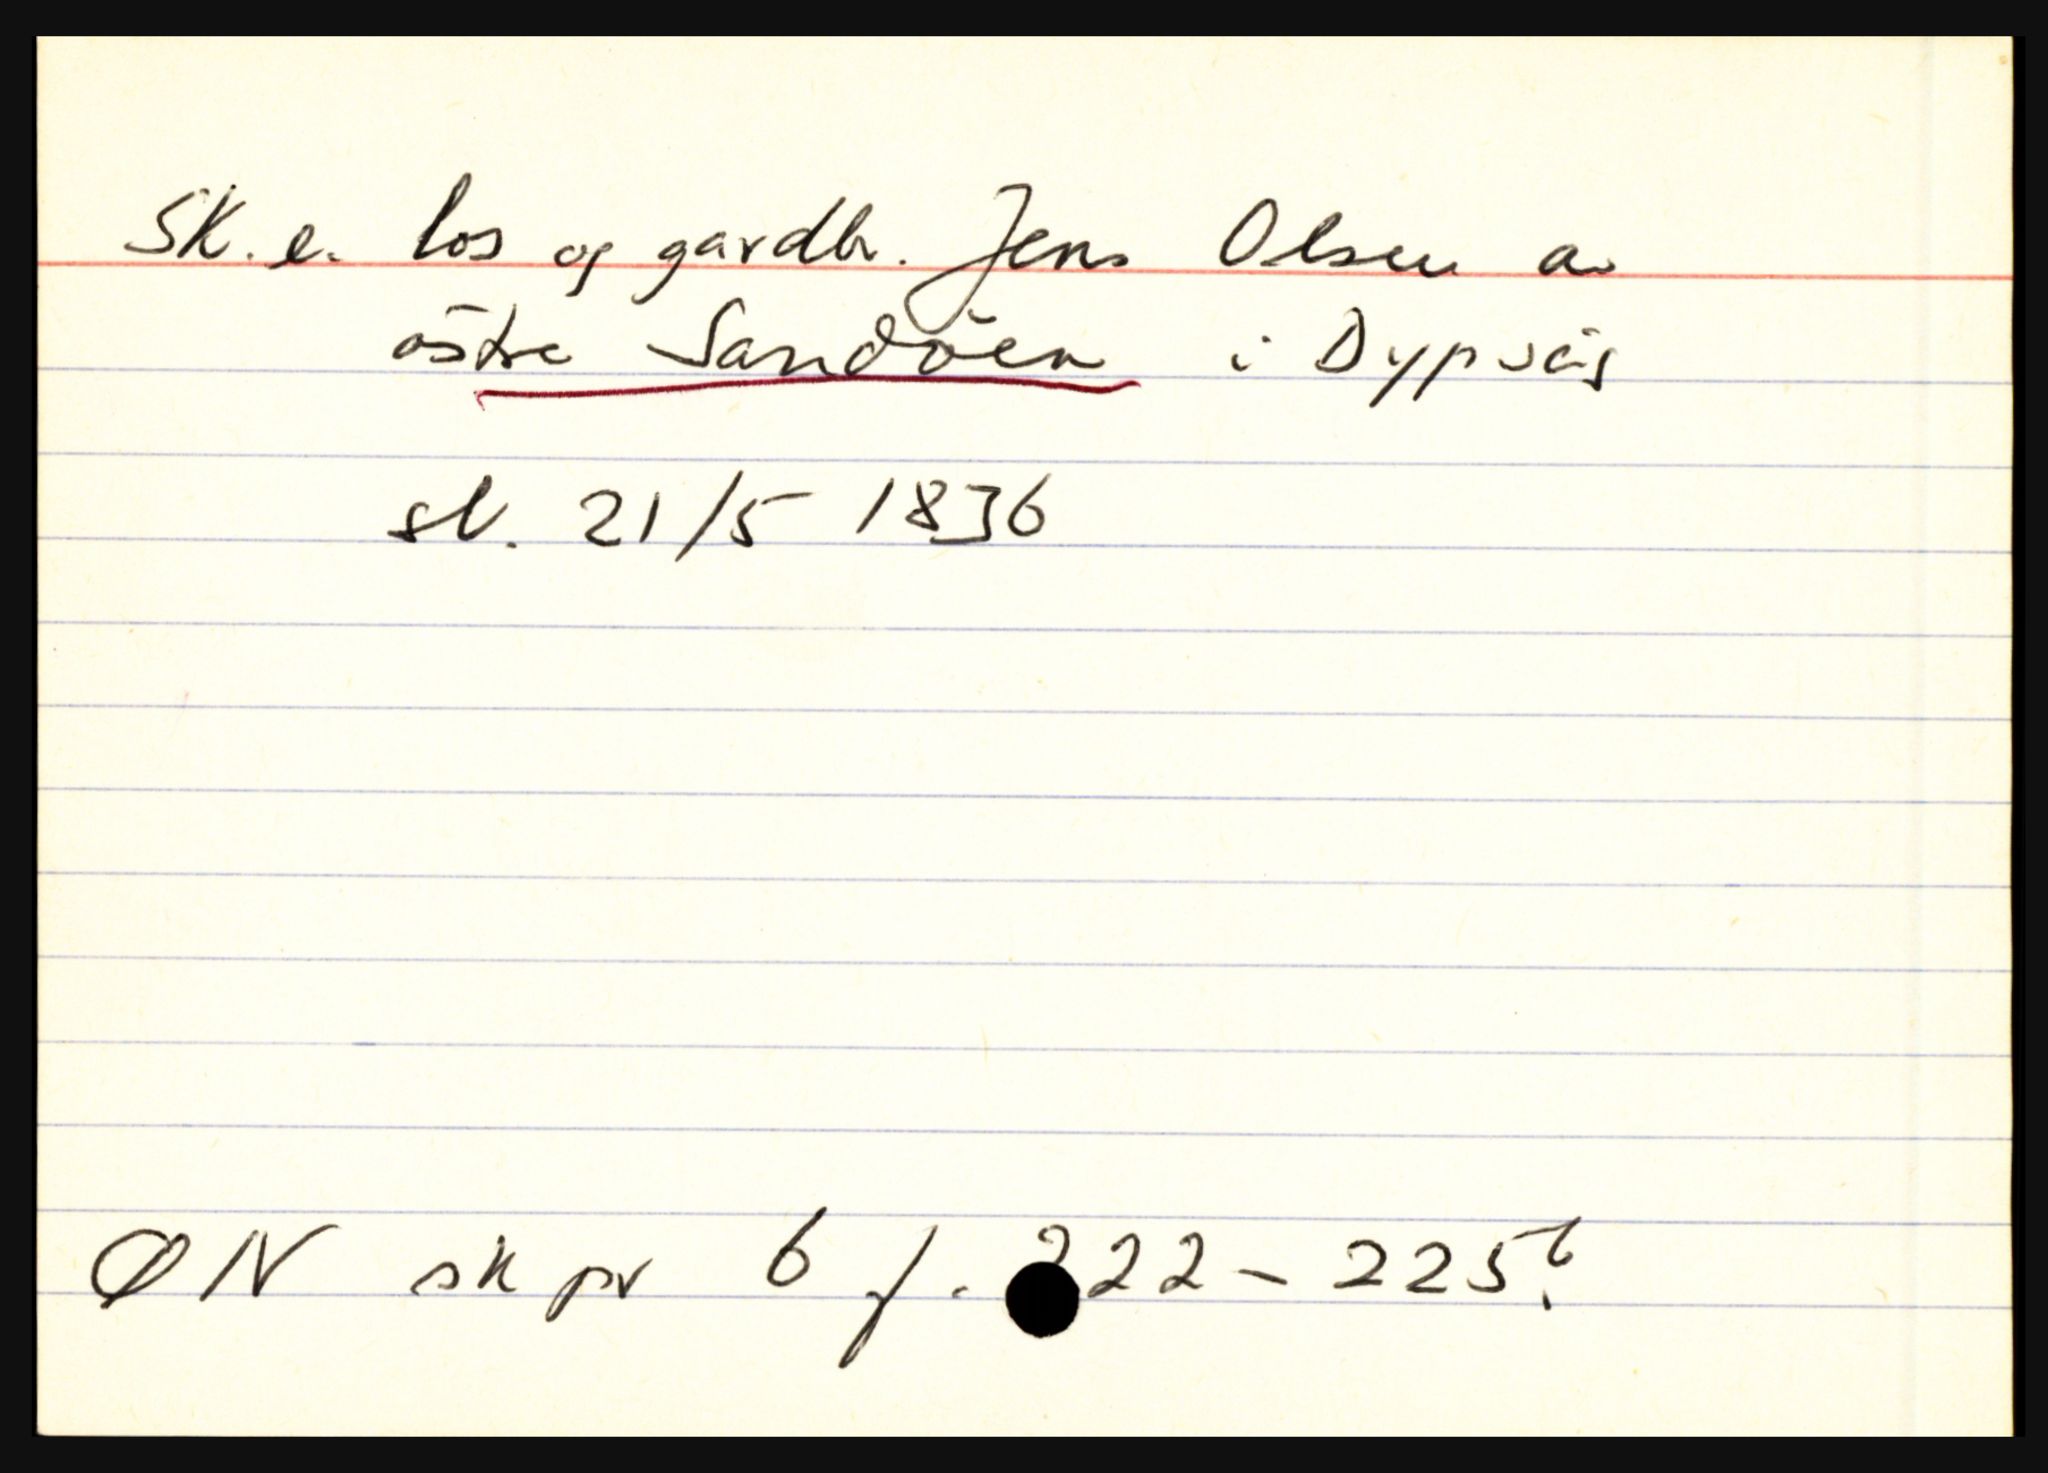 Sk. e. los og gardbr. Jens Olsen av
östre Sandöen i Dypvåg
sl. 21/5 1836
ØN sk pr 6 f. 222 - 225b.